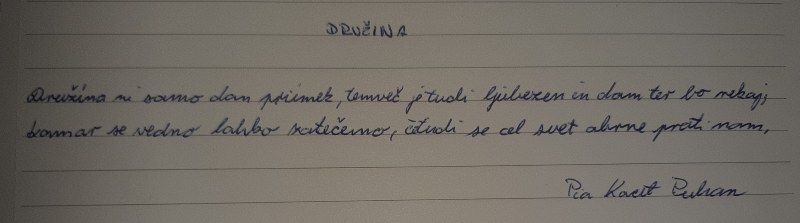 DRUŽINA
Družina ni samo dan priimek, temveč je tudi ljubezen in dom ter bo nekaj,
kamor se vedno lahko zatečemo, čtudi se cel svet obrne proti nam.
Pia Kacit Puhan